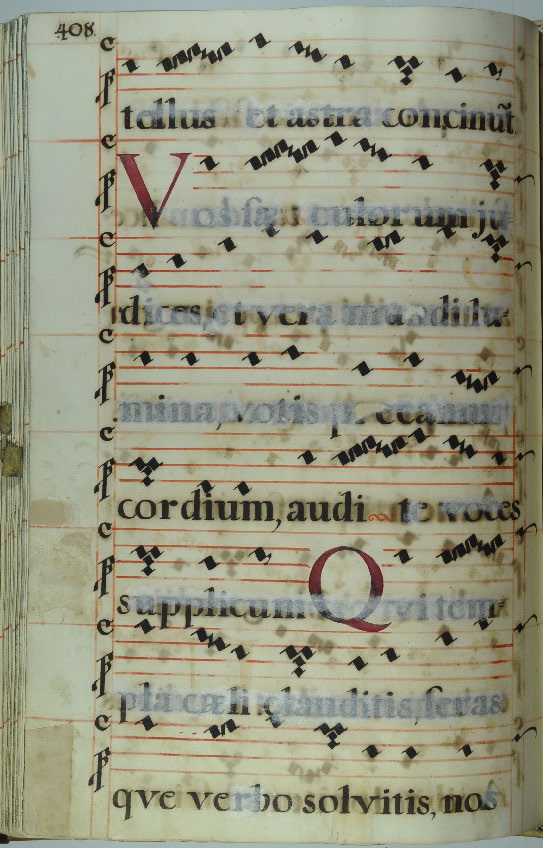 408.
tellus et astra concinũt
Vos sæculorum ju
dices, et vera mundi lu-
mina, votis precamur
cordium, audite voces
supplicum Qvi tem-
pla cæli clauditis, seras
qve verbo solvitis, nos